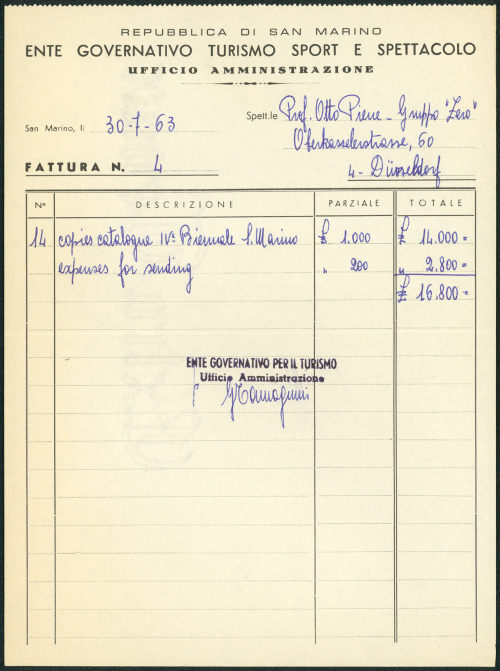 REPUBBLICA DI SAN MARINO
ENTE GOVERNATIVO TURISMO SPORT E SPETTACOLO
UFFICIO AMMINISTRAZIONE
San Marino, li 30-7-63
Spett.le Prof. Otto Piene - Gruppo "Zero"
Oberkasselerstrasse, 60
4 - Düsseldorf
FATTURA N. 4
N° DESCRIZIONE PARZIALE TOTALE
14 copies catalogue IVª Biennale S. Marino £ 1.000 £ 14.000=
expenses for sending " 200 " 2.800=
£ 16.800=
ENTE GOVERNATIVO PER IL TURISMO
Ufficio Amministrazione